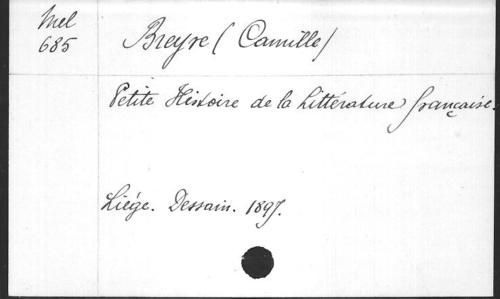 Mel
685
Breyre (Camille)
Petite Histoire de la Littérature française.
Liége. Dessain. 1897.